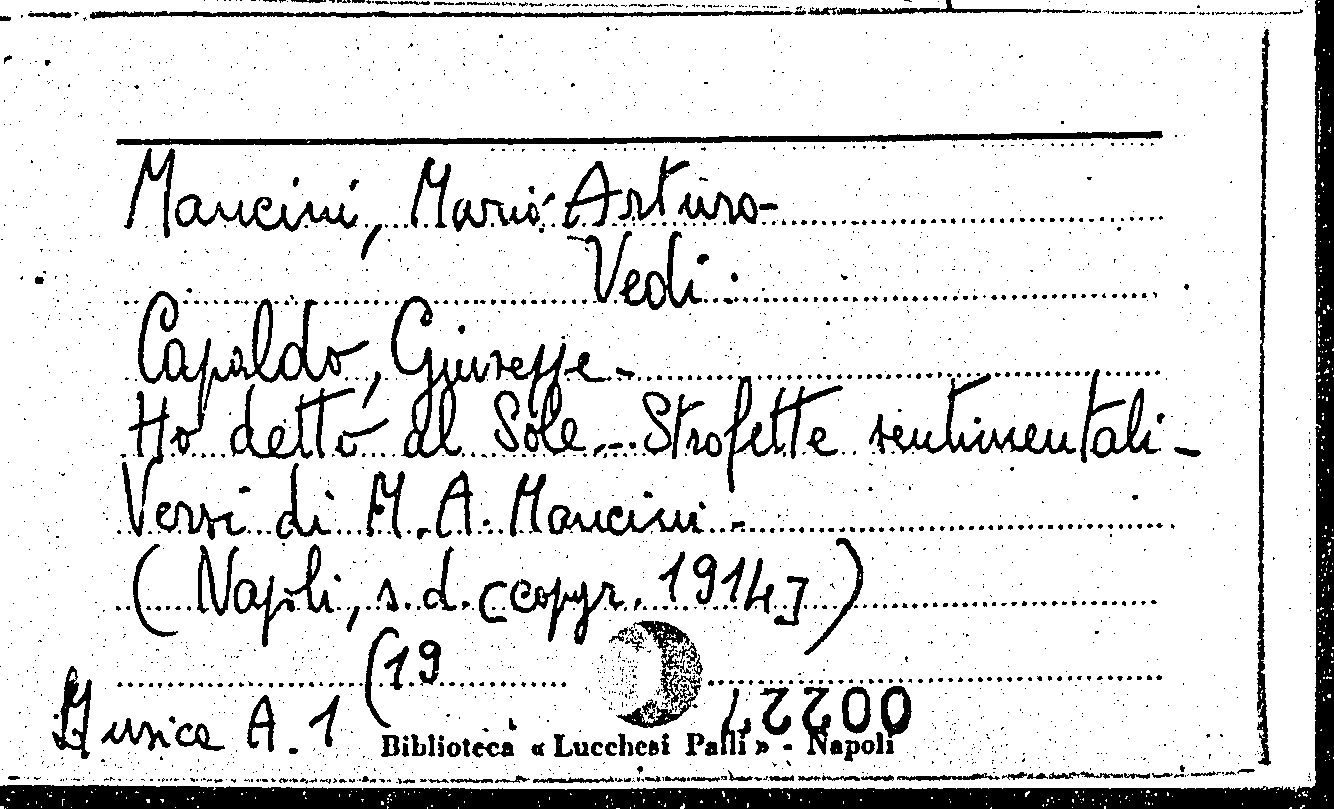 Mancini, Mario Arturo-
Vedi:
Capaldo, Giuseppe-
Ho detto al Sole... Strofette sentimentali-
Versi di M. A. Mancini-
(Napoli, s.d. [copyr. 1914])
Musica A. 1 (19
Biblioteca « Lucchesi Palli » - Napoli
00227